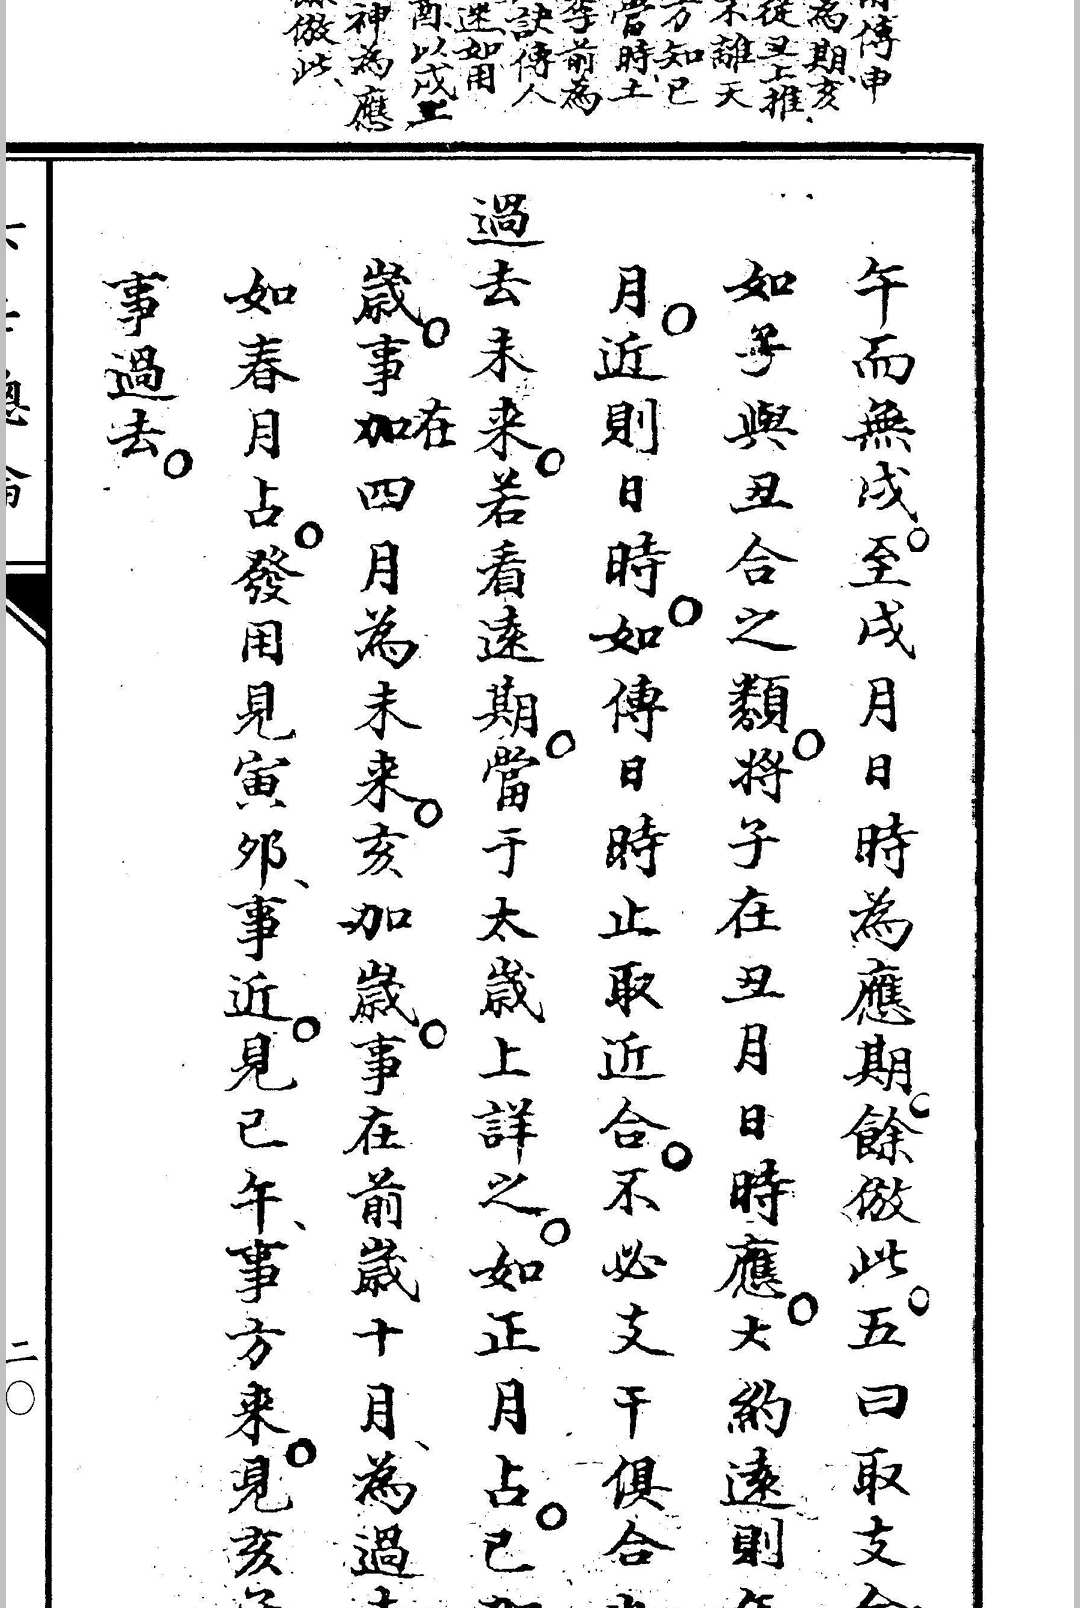 傳申
為期亥
從丑上推
不離天
方知已
當時土
季前為
訣傳人
迷如用
酉以戌土
神為應
倣此
午而無戌至戌月日時為應期餘倣此五曰取支
如子與丑合之類將子在丑月日時應大約遠則
月近則日時如傳日時止取近合不必支干俱合
過去未来若看遠期當于太歲上詳之如正月占巳
歲事在加四月為未来亥加歲事在前歲十月為過
如春月占發用見寅夘事近見巳午事方来見亥
事過去
二〇